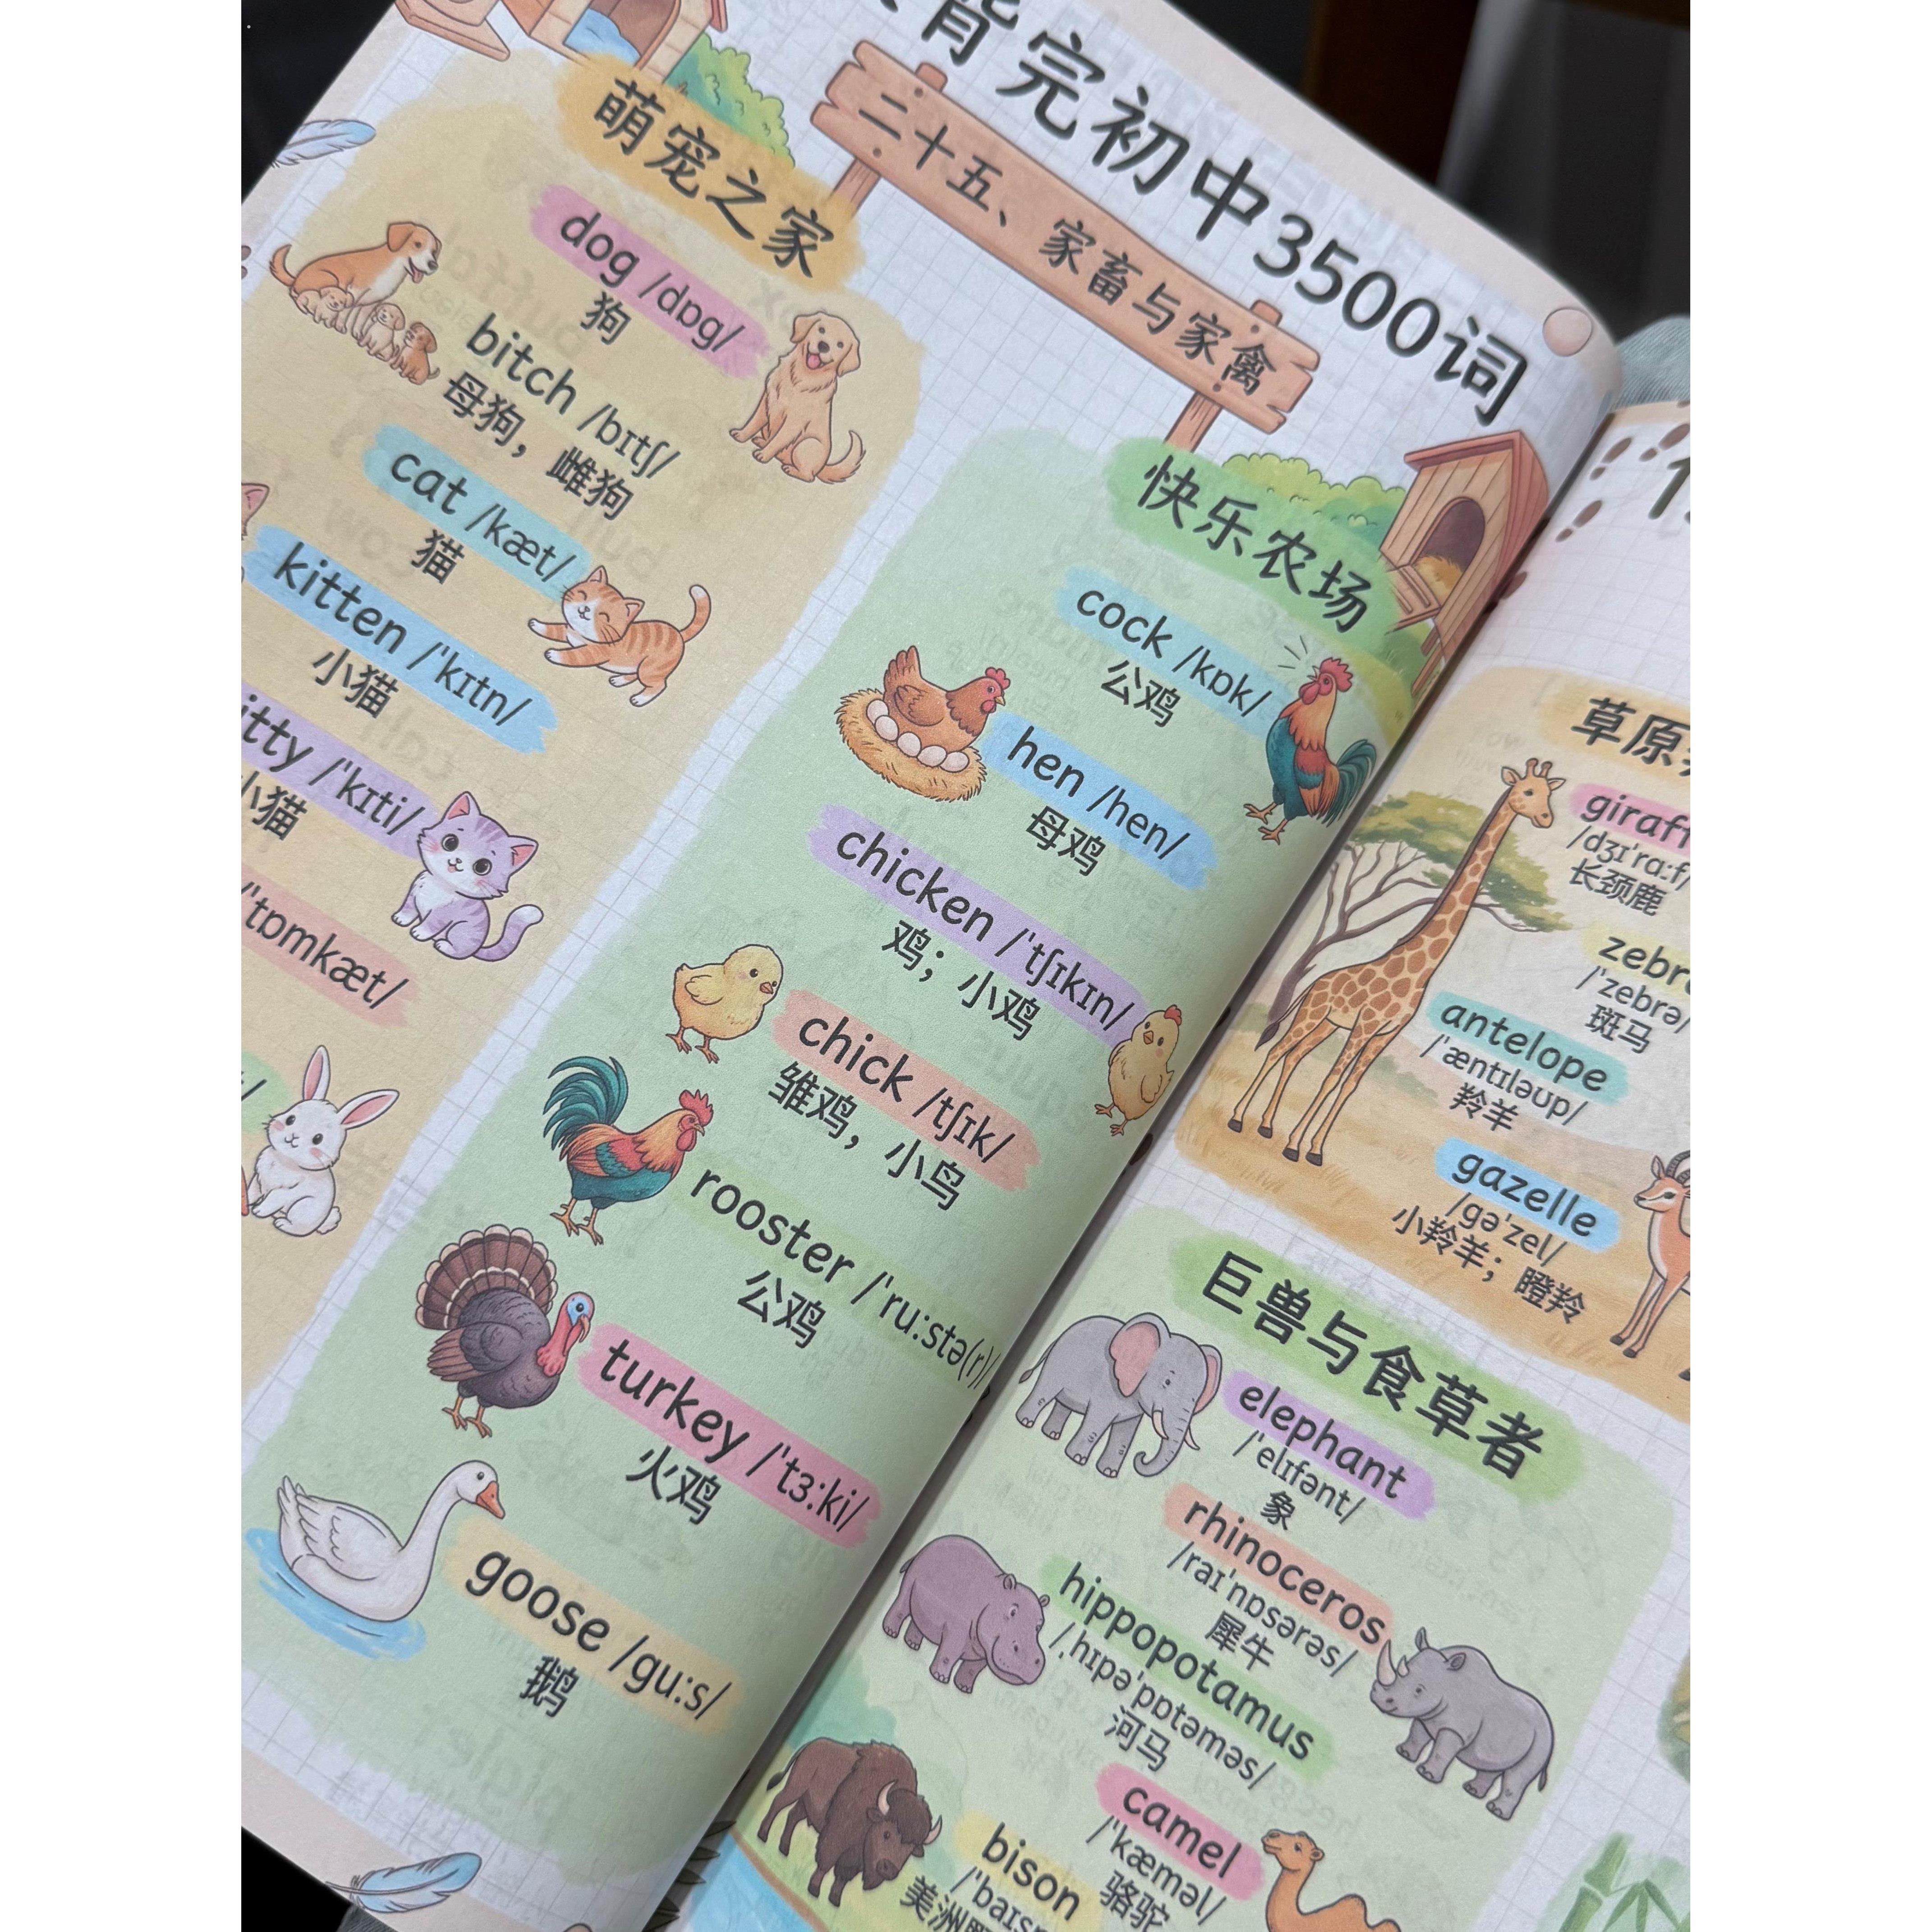 背完初中3500词
二十五、家畜与家禽
萌宠之家
dog /dɒg/
狗
bitch /bɪtʃ/
母狗，雌狗
cat /kæt/
猫
kitten /ˈkɪtn/
小猫
/ˈkɪti/
小猫
/ˈtɒmkæt/
快乐农场
cock /kɒk/
公鸡
hen /hen/
母鸡
chicken /ˈtʃɪkɪn/
鸡；小鸡
chick /tʃɪk/
雏鸡，小鸟
rooster /ˈruːstə(r)/
公鸡
turkey /ˈtɜːki/
火鸡
goose /guːs/
鹅
草原
/dʒɪˈrɑːf/
长颈鹿
/ˈzebrə/
斑马
antelope
/ˈæntɪləʊp/
羚羊
gazelle
/gəˈzel/
小羚羊；瞪羚
巨兽与食草者
elephant
/ˈelɪfənt/
象
rhinoceros
/raɪˈnɒsərəs/
犀牛
hippopotamus
/ˌhɪpəˈpɒtəməs/
河马
camel
/ˈkæməl/
骆驼
bison
美洲